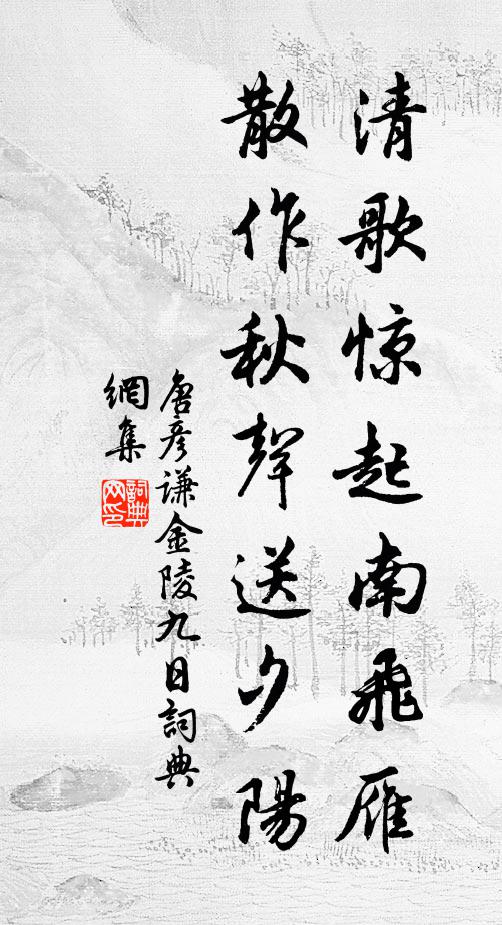 清歌惊起南飛雁
散作秋聲送夕陽
唐彦谦金陵九日詞典
網集
詞典
网印